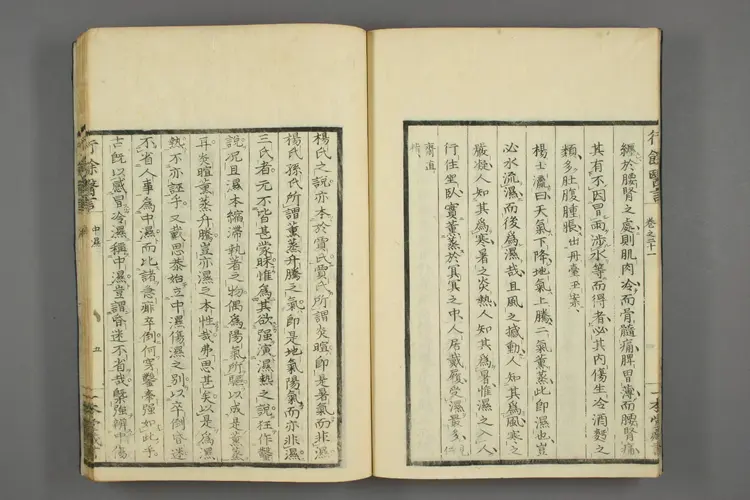 行餘醫言
卷之二十一
纏於腰腎之處則肌肉冷而骨髓痛脾胃薄而腰腎痛
其有不因冒雨涉水等而得者必其内傷生冷酒麵之
類多肚腹腫脹出丹臺玉案
楊士瀛曰天氣下降地氣上騰二氣薰蒸此即濕也豈
必水流濕而後為濕哉且風之撼動人知其為風寒之
嚴凝人知其為寒暑之炎熱人知其為暑惟濕之
人
行住坐臥實薰蒸於冥冥之中人居戴履受濕最多
齋直
楊氏之說亦本於雷氏賈氏所謂炎暄即是暑氣而非濕
楊氏孫氏所謂薰蒸升騰之氣即是地氣陽氣而亦非濕
三氏者元不皆甚蒙昧惟為其欲强演濕熱之說枉作鑿
說况且濕本縮滯執著之物偶為陽氣所驅以成是薰蒸
耳炎暄薰蒸升騰豈亦濕之本性哉弗思甚矣以是為濕
熱不亦誣乎又戴思恭始立中濕傷濕之別以卒倒昏迷
不省人事為中濕而比諸急痱卒倒何穿鑿牽强如此乎
古既以感冒冷濕稱中濕豈謂昏迷不省哉槩强辨中傷
行餘醫言
中濕
五